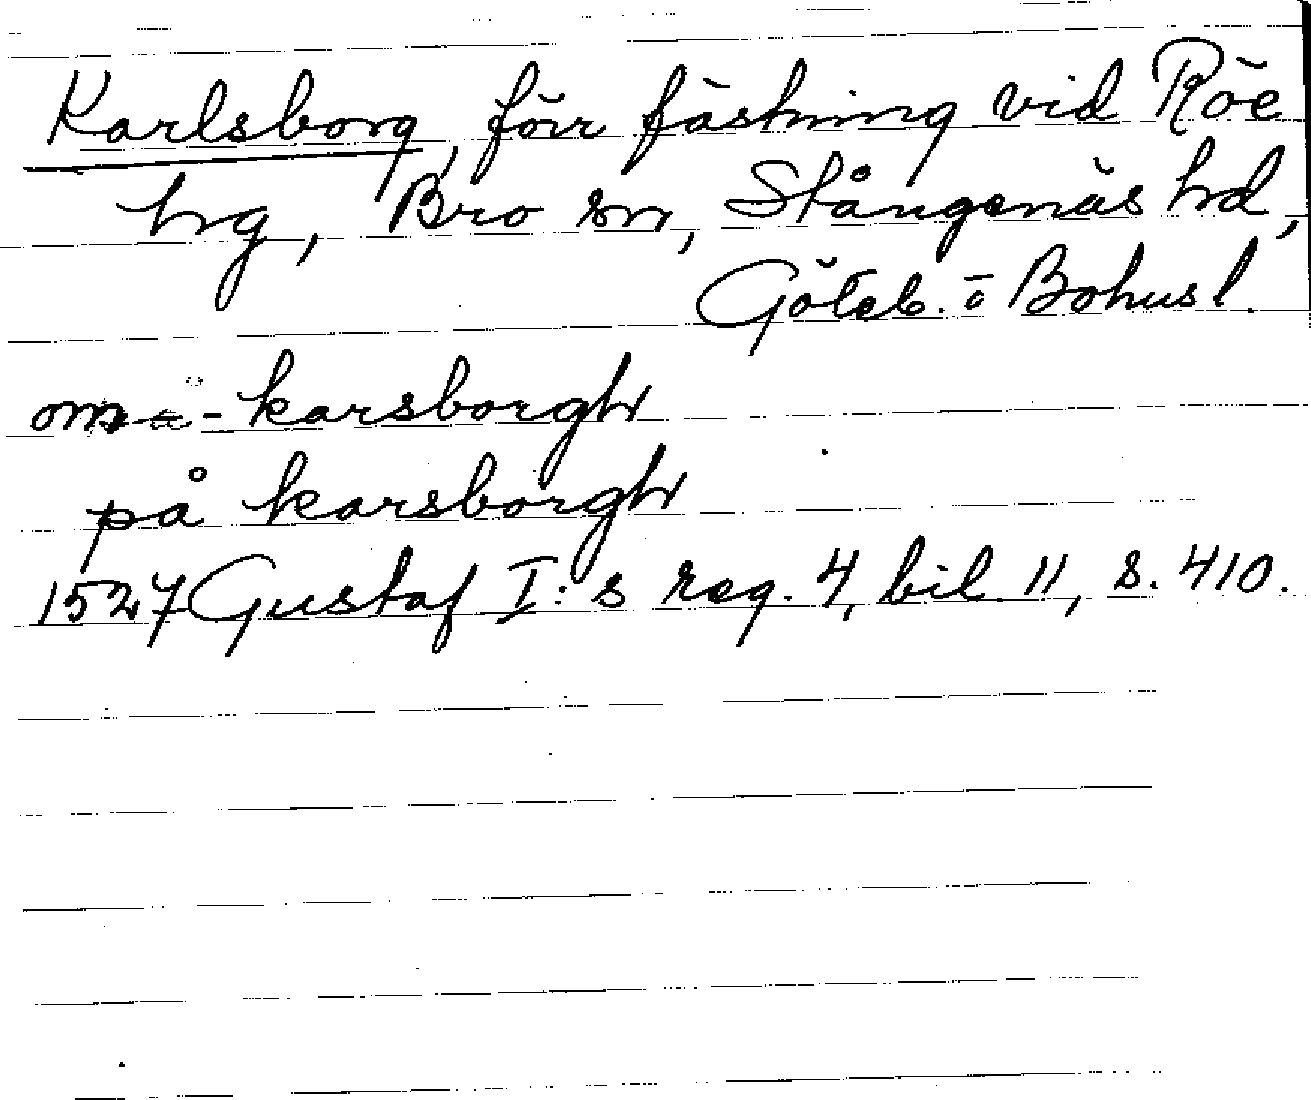 Karlsborg, förr fästning vid Röe
hg, Bro sn, Stångenäs hd,
Göteb. o Bohusl.
om - karsborgh
på karsborgh
1527 Gustaf I:s reg. 4, bil 11, s. 410.